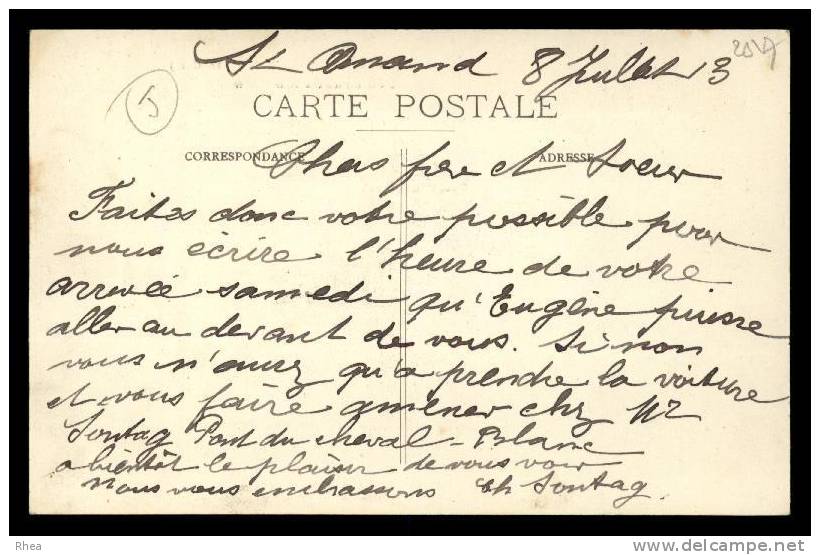 St Amand 8 Juillet 13
2517
J
CARTE POSTALE
CORRESPONDANCE
ADRESSE
Chers frère et Soeur
Faites donc votre possible pour
nous écrire l'heure de votre
arrivée samedi qu'Eugène puisse
aller au devant de vous. Si non
vous n'aurez qu'a prendre la voiture
et vous faire amener chez Mr
Sontag Pont du cheval-Blanc
a bientôt le plaisir de vous voir
Nous vous embrassons Ch Sontag.
Rhea
www.delcampe.net